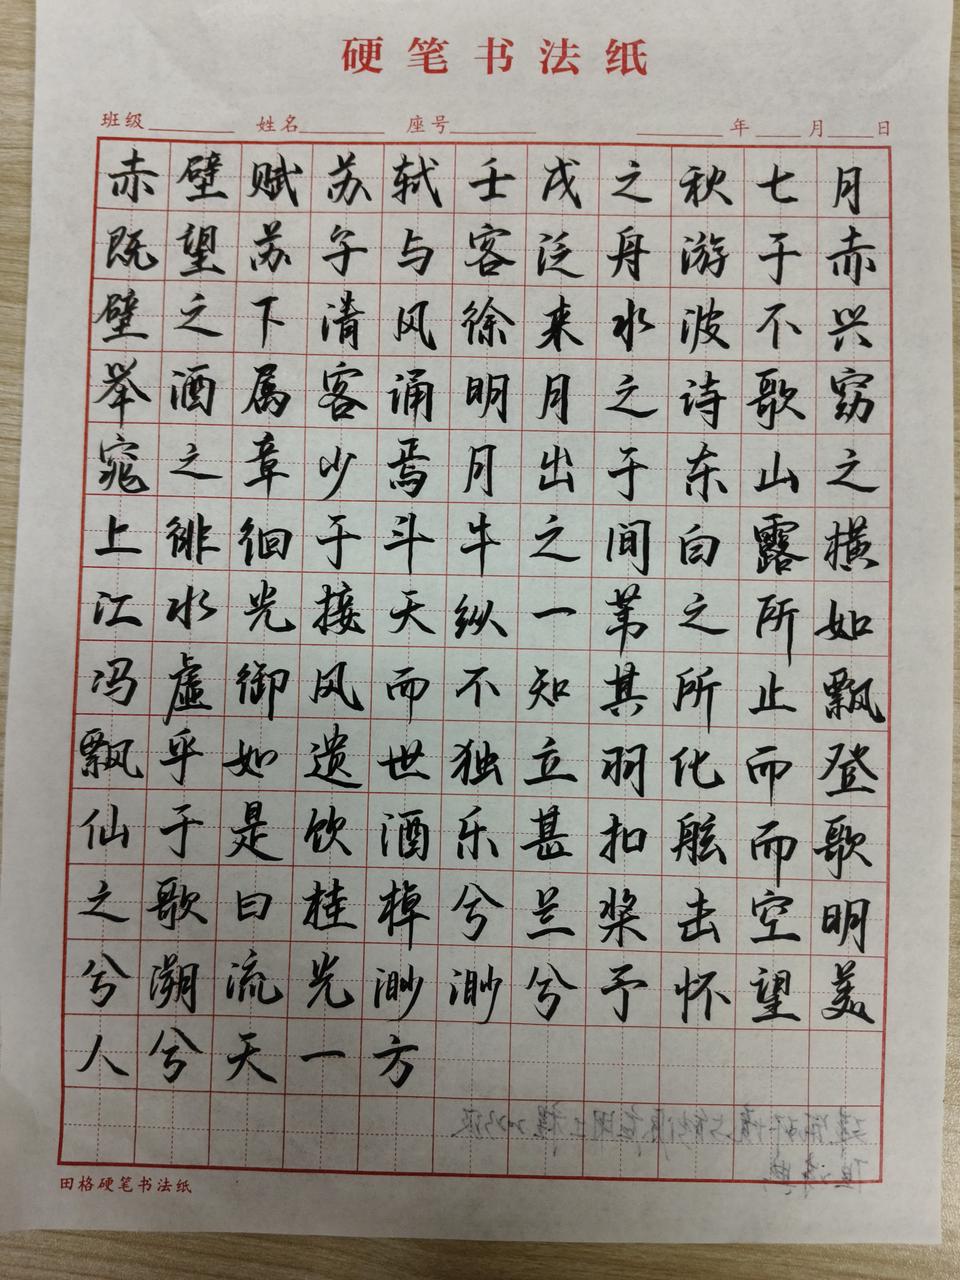 硬笔书法纸
班级 姓名 座号 年 月 日
赤壁赋苏轼壬戌之秋七月
既望苏子与客泛舟游于赤
壁之下清风徐来水波不兴
举酒属客诵明月之诗歌窈
窕之章少焉月出于东山之
上徘徊于斗牛之间白露横
江水光接天纵一苇之所如
冯虚御风而不知其所止飘
飘乎如遗世独立羽化而登
仙于是饮酒乐甚扣舷而歌
之歌曰桂棹兮兰桨击空明
兮溯流光渺渺兮予怀望美
人兮天一方
田格硬笔书法纸